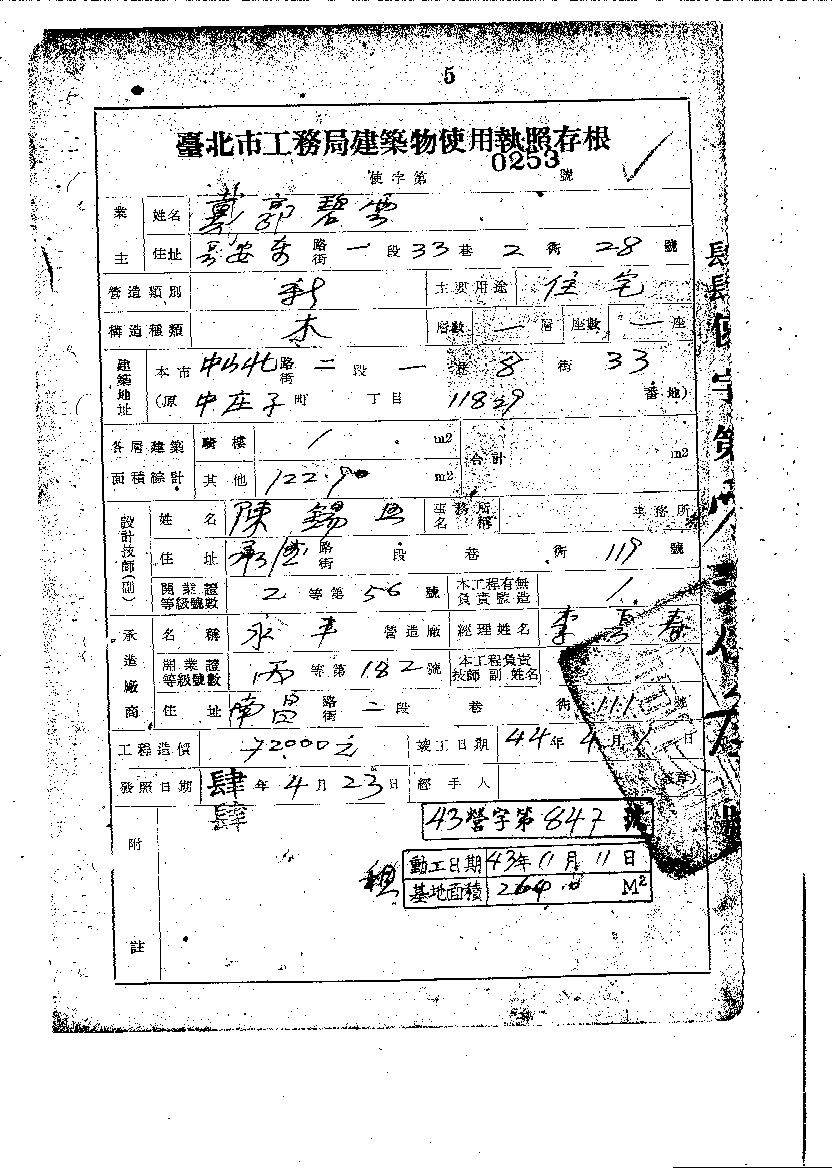 5
臺北市工務局建築物使用執照存根
使字第 0253 號
業主 姓名 戴郭碧雲
住址 長安東 路街 一 段 33 巷 2 街 28 號
營造類別 新 主要用途 住宅
構造種類 木 層數 一 層 座數 一 座
建築地址 本市 中山北 路街 二 段 一 巷 8 街 33
(原 中庄子 町 丁目 118之29 番地)
各層建築面積綜計 騎樓 / m2 合計 m2
其他 122.90 m2
設計技師(副) 姓名 陳錫 事務所名稱 事務所
住址 承德 路街 段 巷 街 119 號
開業證等級號數 2 等第 56 號 本工程有無負責監造 /
承造廠商 名稱 永丰 營造廠 經理姓名 李 春
開業證等級號數 丙 等第 182 號 本工程負責技師副姓名
住址 南昌 路街 二 段 巷 街 111 號
工程造價 72000元 竣工日期 44 年 4 月 日
發照日期 肆肆 年 4 月 23 日 經手人 (蓋章)
附註
43營字第847號
動工日期 43年11月11日
基地面積 264 M²
租
肆肆使字第